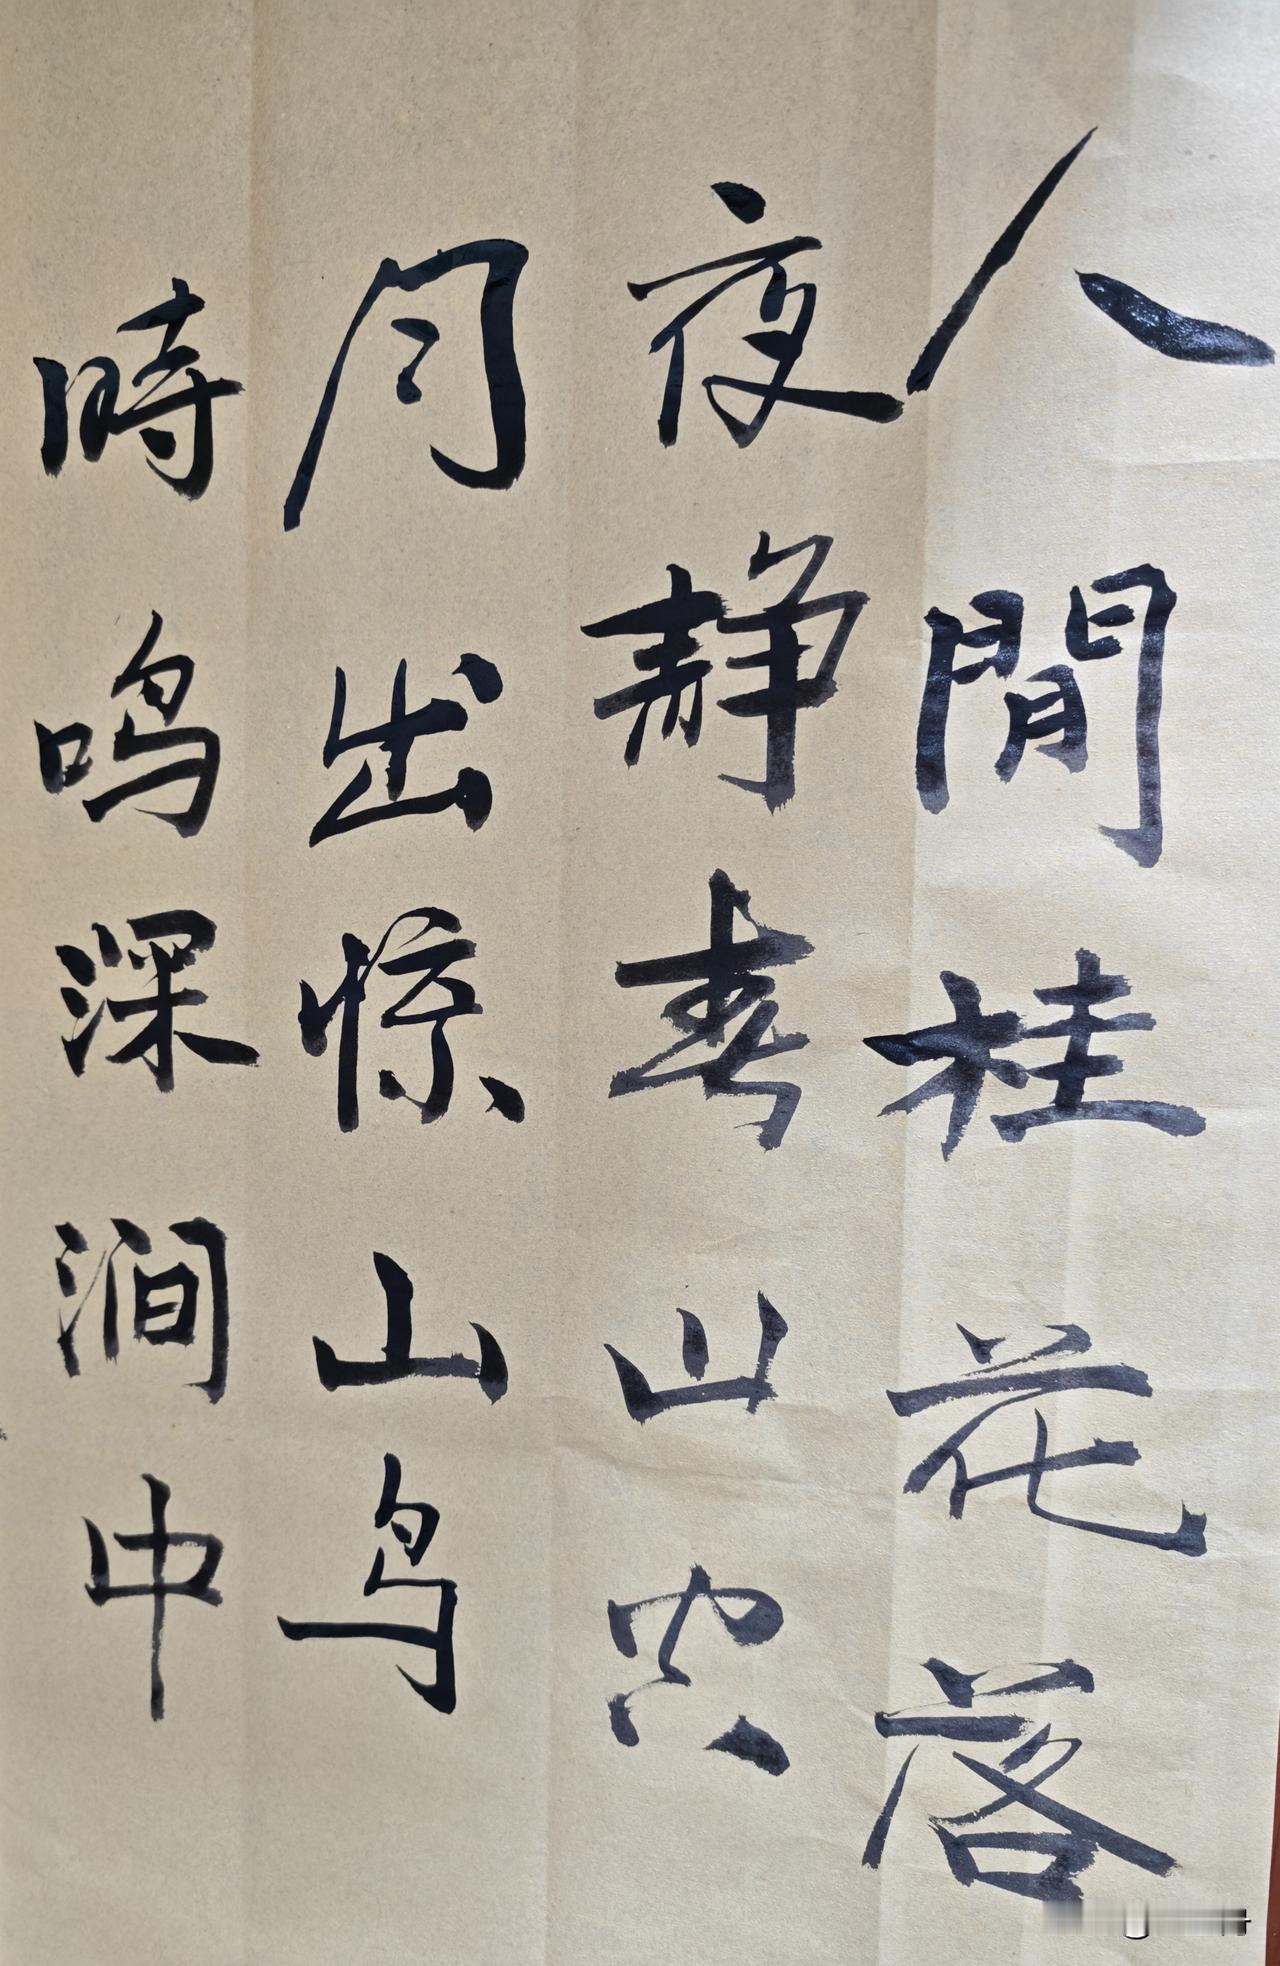 人閒桂花落
夜静春山空
月出惊山鸟
時鸣深涧中